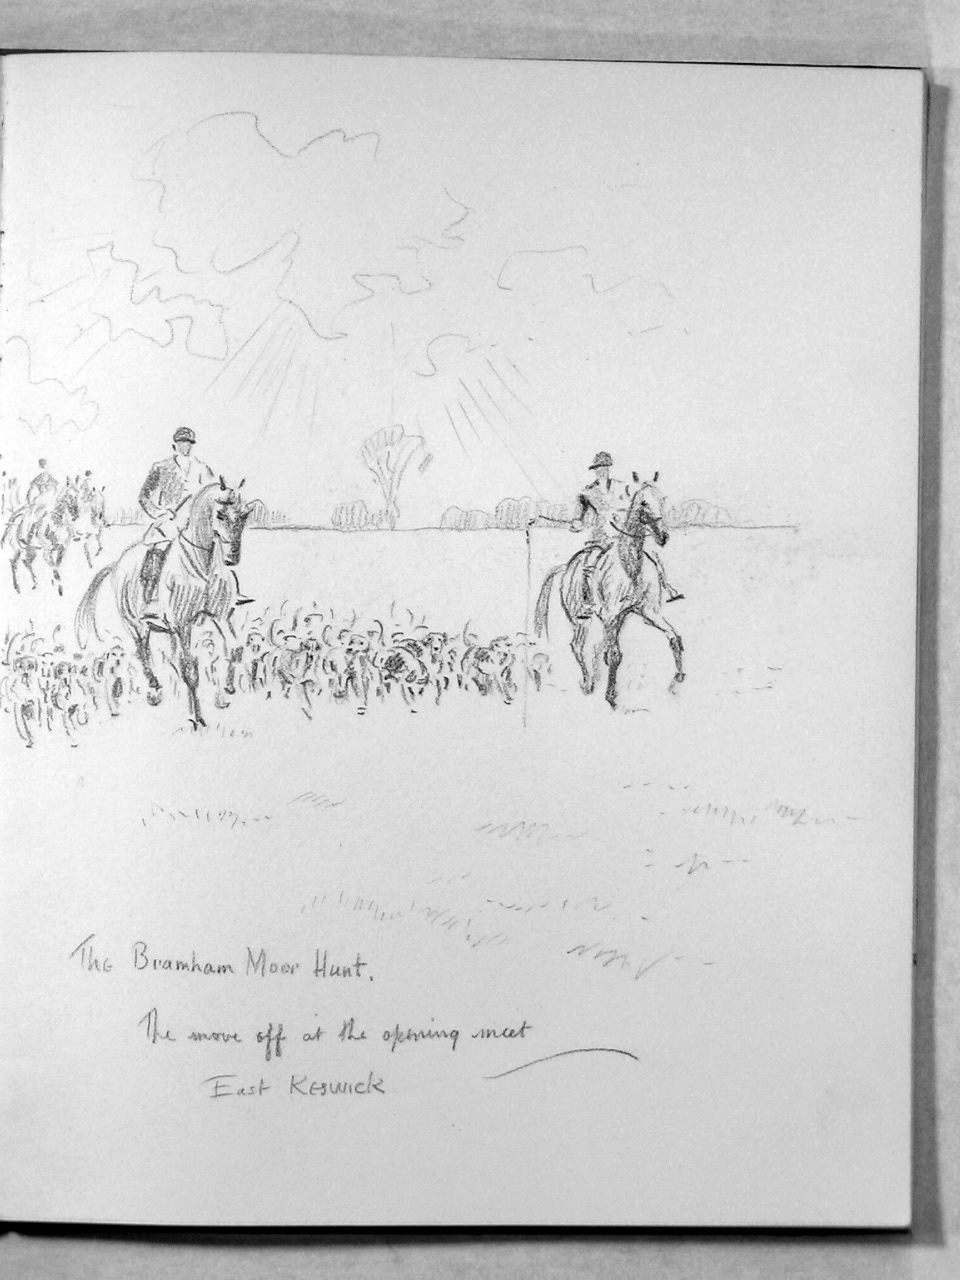 The Bramham Moor Hunt.
The move off at the opening meet
East Keswick